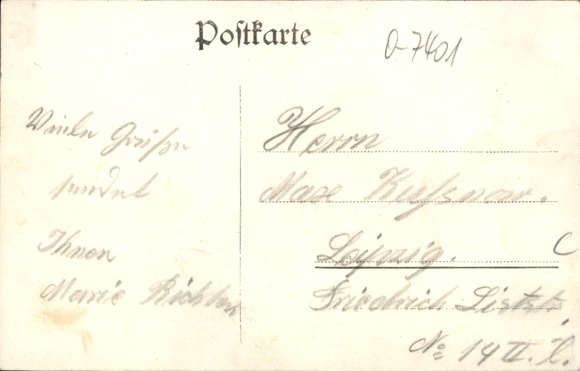 Postkarte
0-7401
Viele Grüße
sendet
Ihnen
Marie Richter
Herrn
Max
Leipzig.
Friedrich Liststr.
No 14 II. l.